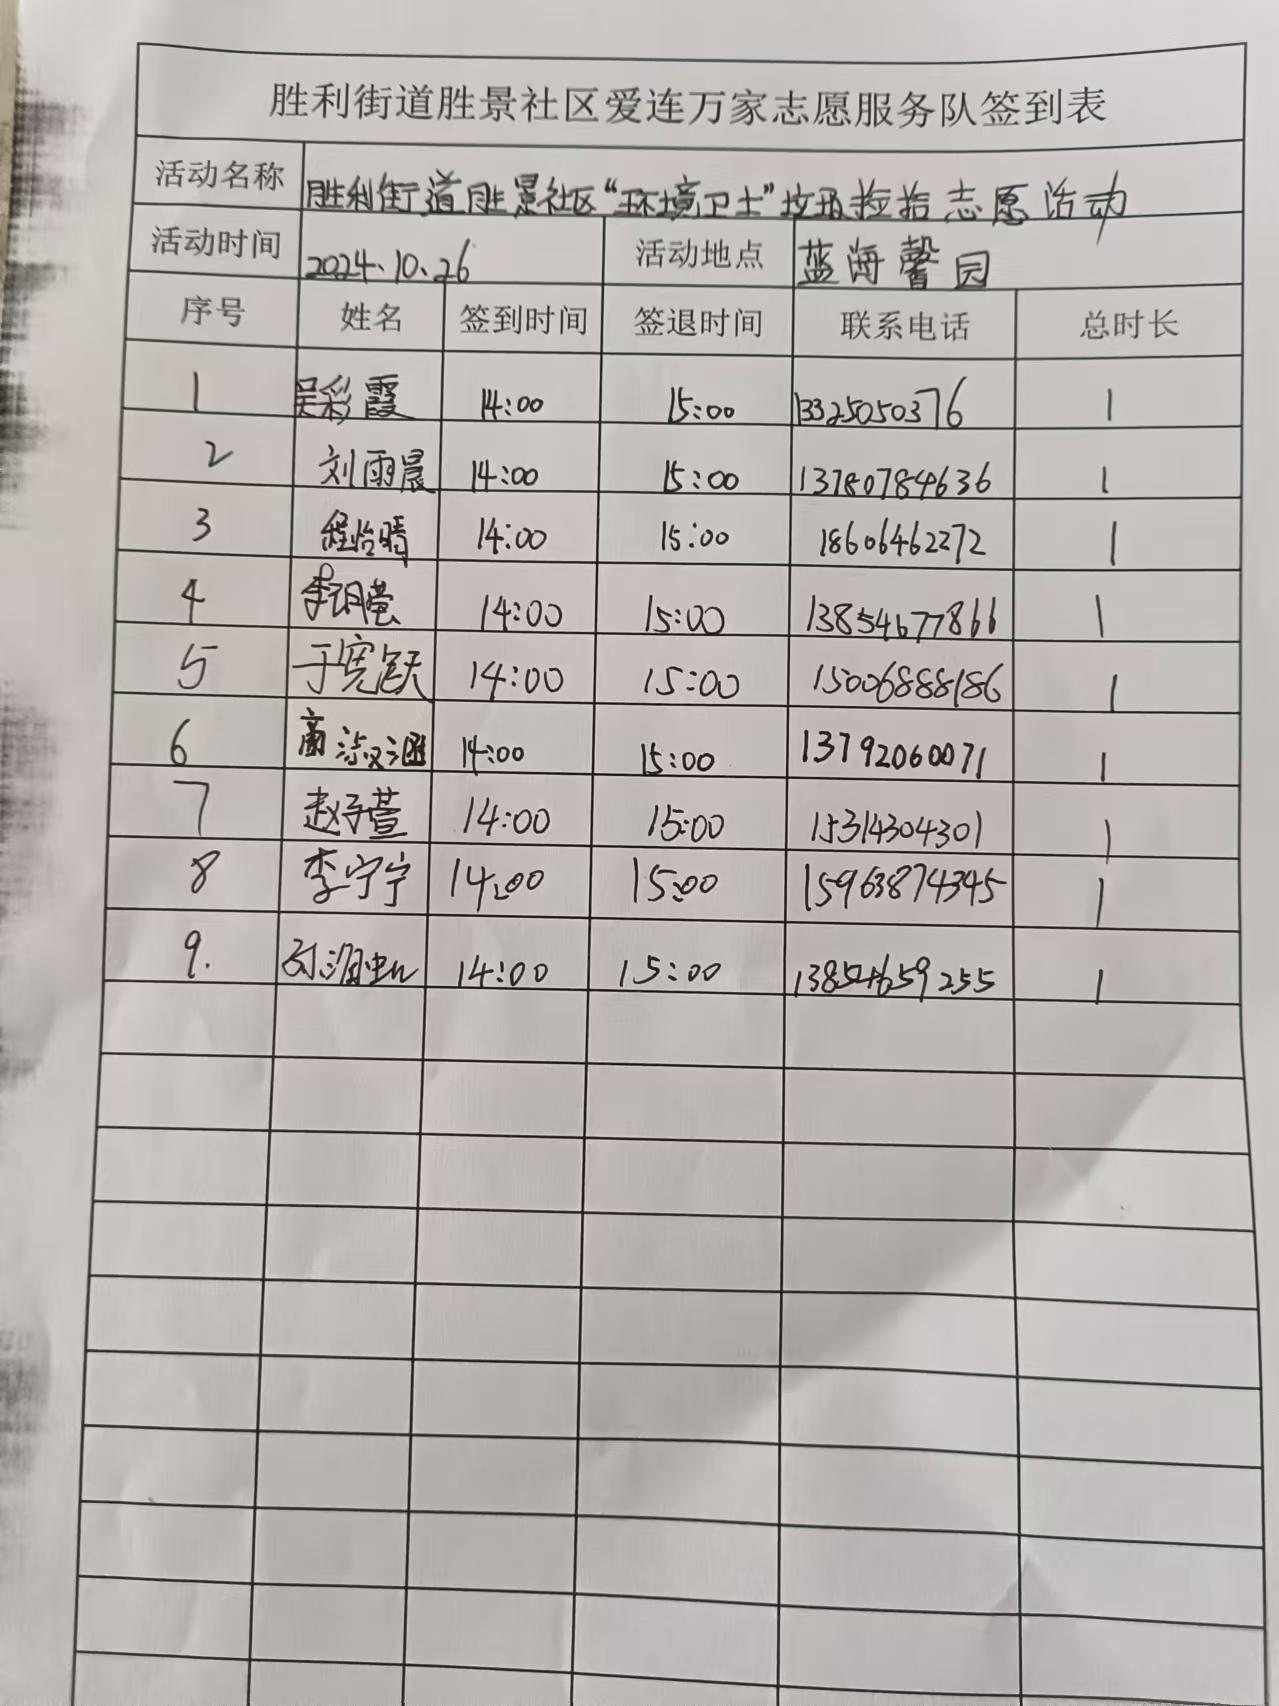 胜利街道胜景社区爱连万家志愿服务队签到表
活动名称 胜利街道胜景社区“环境卫士”垃圾捡拾志愿活动
活动时间 2024.10.26 活动地点 蓝海馨园
序号 姓名 签到时间 签退时间 联系电话 总时长
1 吴彩霞 14:00 15:00 13325050376 1
2 刘雨晨 14:00 15:00 13780784636 1
3 程怡晴 14:00 15:00 18606462272 1
4 14:00 15:00 13854677866 1
5 于宪跃 14:00 15:00 15006888186 1
6 14:00 15:00 13792060071 1
7 赵子萱 14:00 15:00 15314304301 1
8 李宁宁 14:00 15:00 15963874345 1
9. 14:00 15:00 13854659255 1